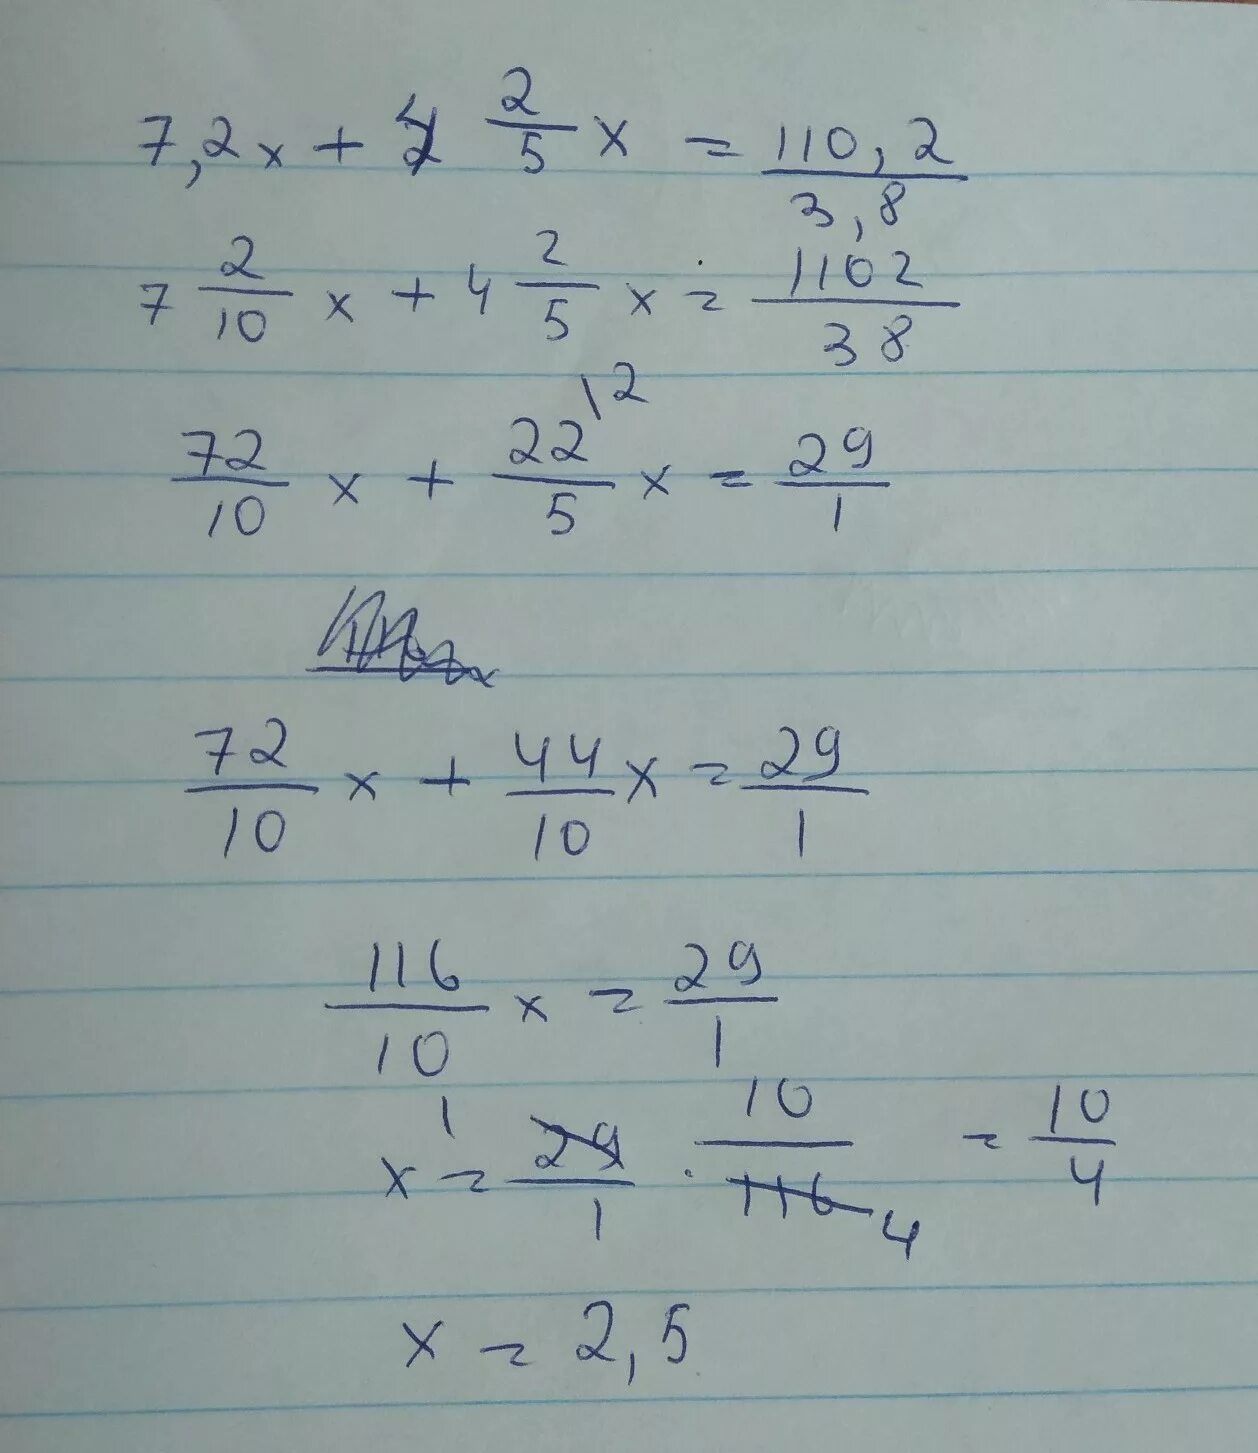 7,2x + 4 2/5 x = 110,2/3,8
7 2/10 x + 4 2/5 x = 1102/38
72/10 x + 22/5 ^12 x = 29/1
72/10 x + 44/10 x = 29/1
116/10 x = 29/1
x = 29/1 1 · 10/116 4 = 10/4
x = 2,5